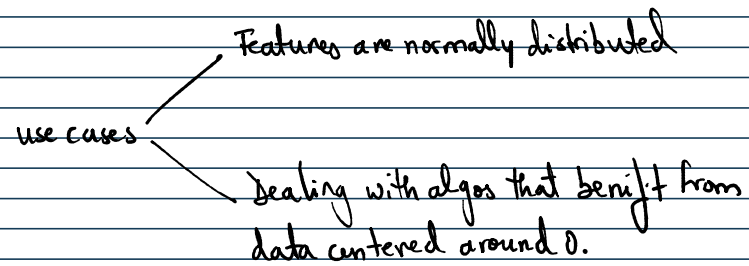 Features are normally distributed
use cases
Dealing with algos that benifit from
data centered around 0.